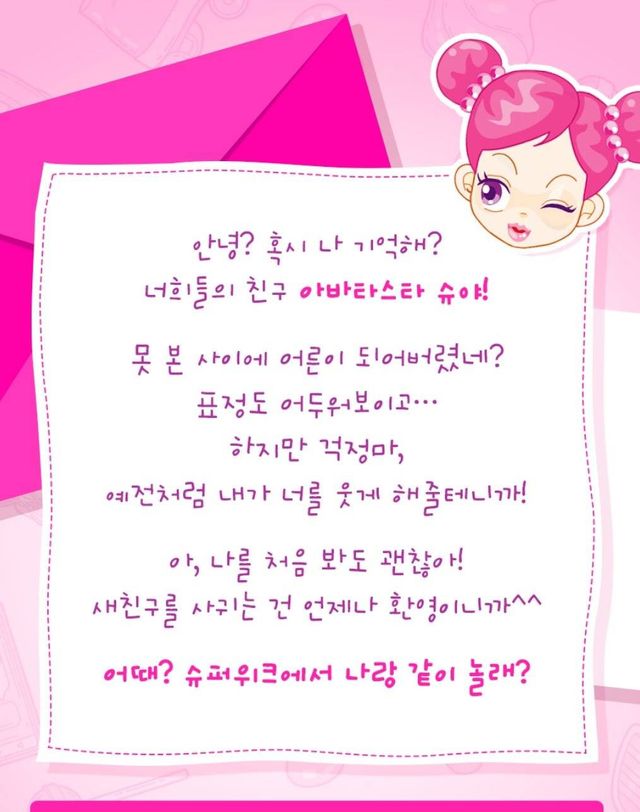 안녕? 혹시 나 기억해?
너희들의 친구 아바타스타 슈야!
못 본 사이에 어른이 되어버렸네?
표정도 어두워보이고…
하지만 걱정마,
예전처럼 내가 너를 웃게 해줄테니까!
아, 나를 처음 봐도 괜찮아!
새친구를 사귀는 건 언제나 환영이니까^^
어때? 슈퍼위크에서 나랑 같이 놀래?